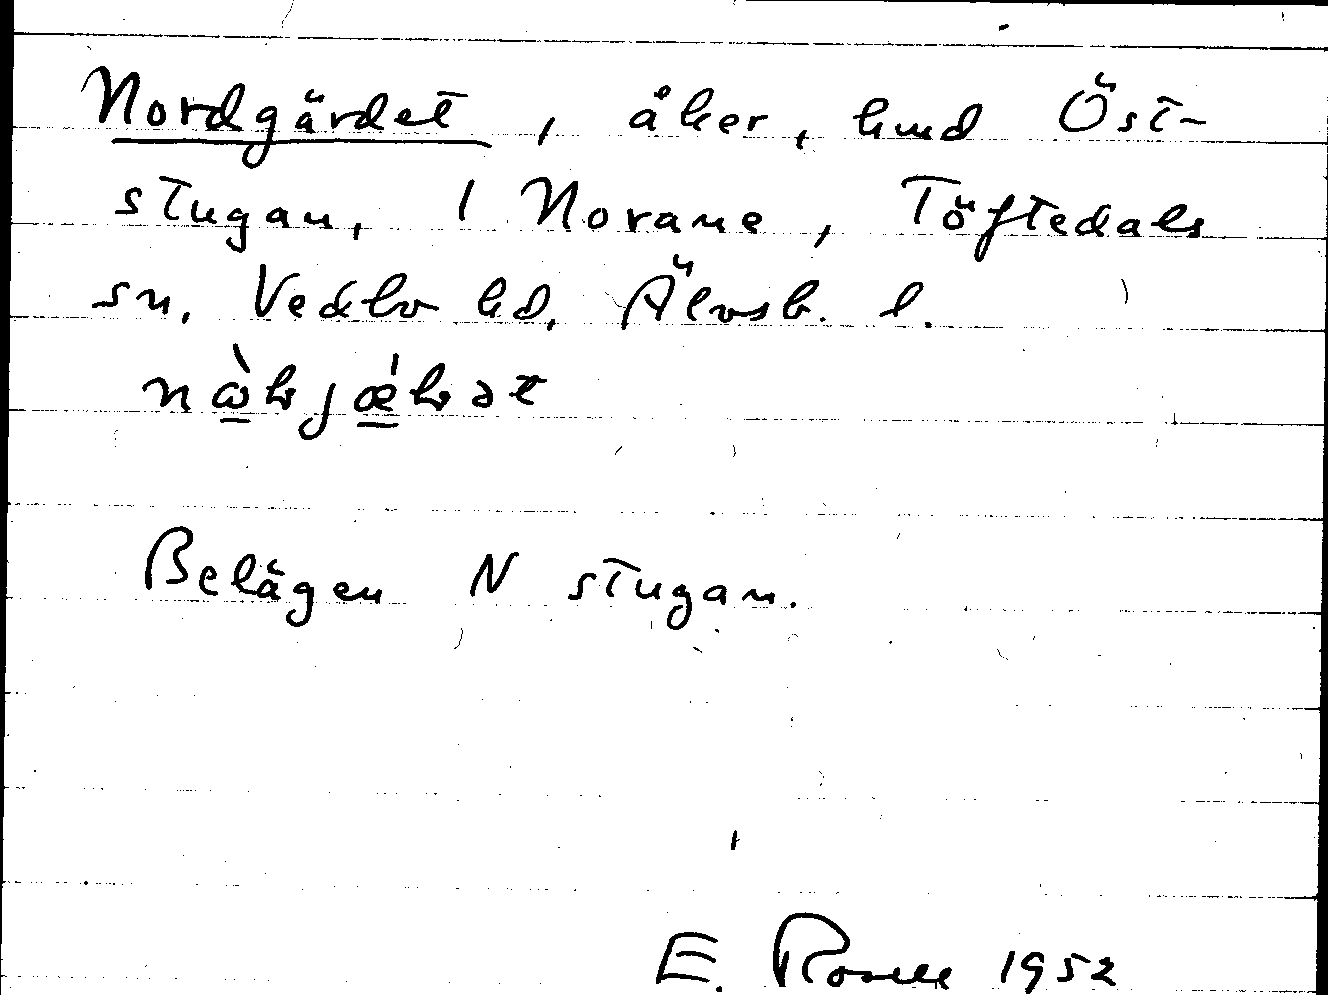 Nordgärdet, åker, hmd Öst-
stugan, 1 Norane, Töftedals
sn, Vedbo hd, Älvsb. l.

Belägen N stugan.
E. Rosell 1952